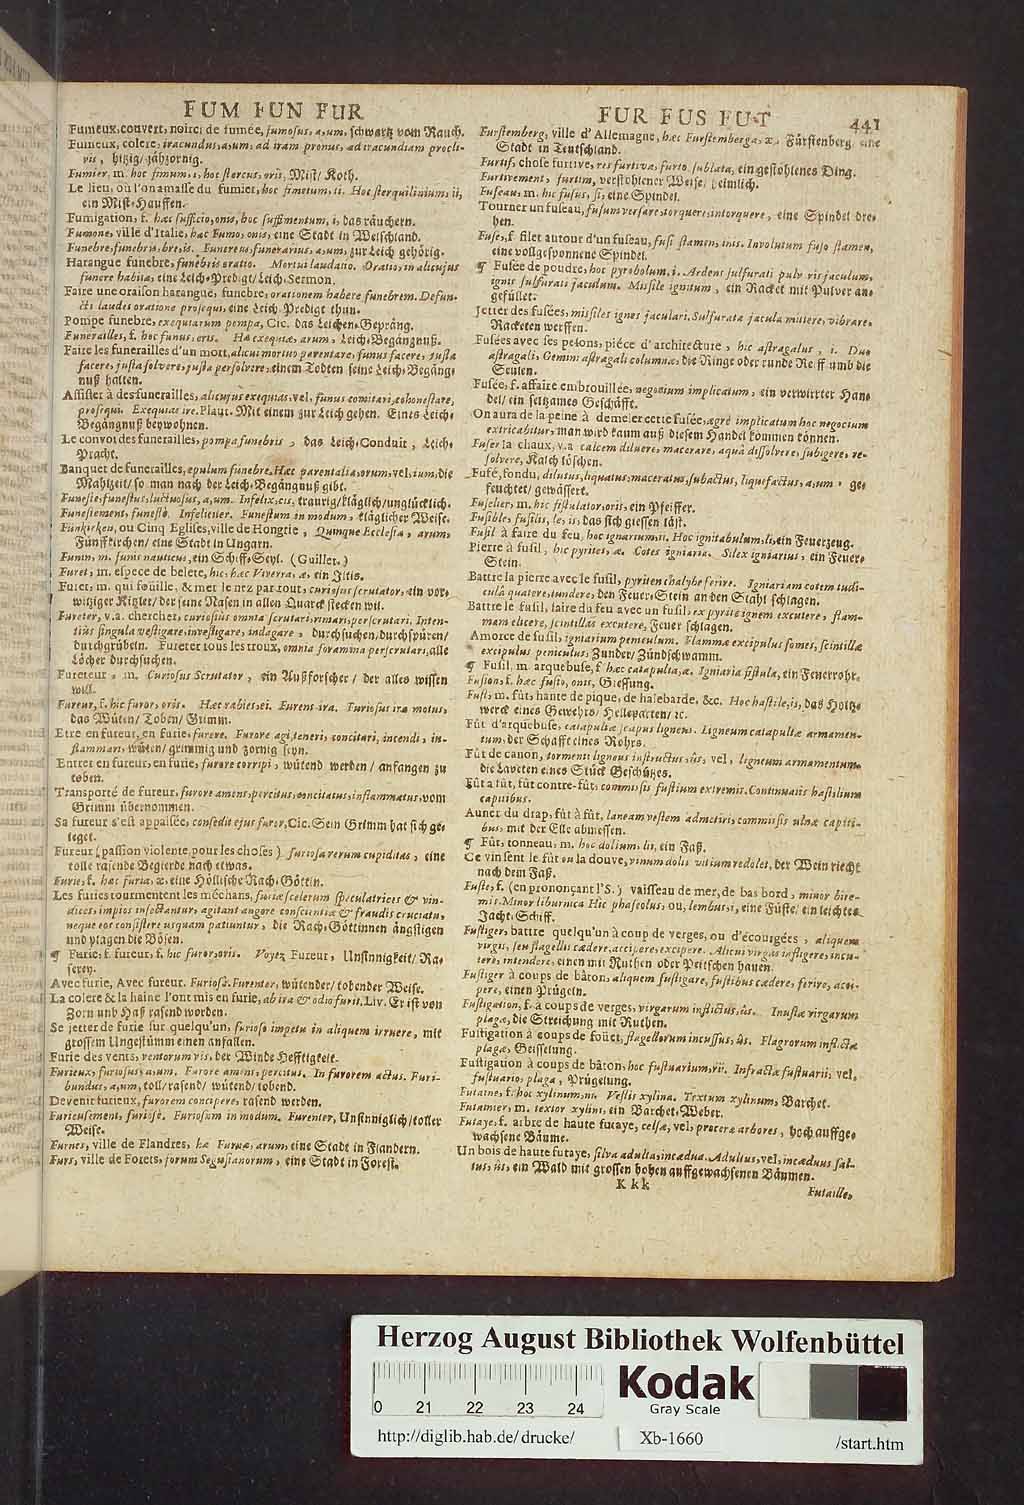 FUM FUN FUR
Fumeux, couvert, noirci de fumée, fumosus, a, um, schwartz vom Rauch.
Fumeux, colere, iracundus, a, um, ad iram pronus, ad iracundiam procli-
vis, hitzig/ jähzornig.
Fumier, m. hoc fimum, i, hoc stercus, oris, Mist/ Koth.
Le lieu, où l'on amasse du fumier, hoc fimetum, ti. Hoc sterquilinium, ii,
ein Mist-Hauffen.
Fumigation, f. hæc suffitio, onis, hoc suffimentum, i, das räuchern.
Fumone, ville d'Italie, hæc Fumo, onis, eine Stadt in Welschland.
Funebre, funebris, bre, is. Funereus, funerarius, a, um, zur Leich gehörig.
Harangue funebre, funebris oratio. Mortui laudatio. Oratio, in alicujus
funere habita, eine Leich-Predigt/ Leich-Sermon.
Faire une oraison harangue, funebre, orationem habere funebrem. Defun-
cti laudes oratione prosequi, eine Leich-Predigt thun.
Pompe funebre, exequiarum pompa, Cic. das Leichen-Gepräng.
Funerailles, f. hoc funus, eris. Hæ exequiæ, arum, Leich-Begängnuß.
Faire les funerailles d'un mort, alicui mortuo parentare, funus facere, justa
facere, justa solvere, justa persolvere, einem Todten seine Leich-Begäng-
nuß halten.
Assister à des funerailles, alicujus exequias, vel, funus comitari, cohonestare,
prosequi. Exequias ire. Plaut. Mit einem zur Leich gehen. Eines Leich-
Begängnuß beywohnen.
Le convoi des funerailles, pompa funebris, das Leich-Conduit, Leich-
Pracht.
Banquet de funerailles, epulum funebre. Hæc parentalia, orum, vel, ium, die
Mahlzeit/ so man nach der Leich-Begängnuß gibt.
Funeste, funestus, luctuosus, a, um. Infelix, cis, traurig/ kläglich/ unglücklich.
Funestement, funestè. Infeliciter. Funestum in modum, kläglicher Weise.
Funkirken, ou Cinq Eglises, ville de Hongrie, Quinque Ecclesiæ, arum,
Fünffkirchen/ eine Stadt in Ungarn.
Funin, m. funis nauticus, ein Schiff-Seyl. (Guillet.)
Furet, m. espece de belete, hic, hæc Viverra, æ, ein Iltis.
Furet, m. qui foüille, & met le nez par tout, curiosus scrutator, ein vor-
witziger Kitzler/ der seine Nasen in allen Quarck stecken wil.
Fureter, v.a. chercher, curiosiùs omnia scrutari, rimari, perscrutari. Inten-
tiùs singula vestigare, investigare, indagare, durchsuchen, durchspüren/
durchgrübeln. Fureter tous les troux, omnia foramina perscrutari, alle
Löcher durchsuchen.
Fureteur, m. Curiosus Scrutator, ein Außforscher/ der alles wissen
will.
Fureur, f. hic furor, oris. Hæc rabies, ei. Furens ira. Furiosus iræ motus,
das Wüten/ Toben/ Grimm.
Etre en fureur, en furie, furere. Furore agi, teneri, concitari, incendi, in-
flammari, wüten/ grimmig und zornig seyn.
Entrer en fureur, en furie, furore corripi, wütend werden/ anfangen zu
toben.
Transporté de fureur, furore amens, percitus, concitatus, inflammatus, vom
Grimm übernommen.
Sa fureur s'est appaisée, consedit ejus furor, Cic. Sein Grimm hat sich ge-
leget.
Fureur (passion violente pour les choses) furiosa rerum cupiditas, eine
tolle rasende Begierde nach etwas.
Furie, f. hæc furia, æ, eine Höllische Rach-Göttin.
Les furies tourmentent les méchans, furiæ scelerum speculatrices & vin-
dices, impios insectantur, agitant angore conscientiæ & fraudis cruciatu,
neque eos consistere usquam patiuntur, die Rach-Göttinnen ängstigen
und plagen die Bösen.
¶ Furie, f. fureur, f. hic furor, oris. Voyez Fureur, Unsinnigkeit/ Ra-
serey.
Avec furie, Avec fureur. Furiosè. Furenter, wütender/ tobender Weise.
La colere & la haine l'ont mis en furie, ab ira & odio furit, Liv. Er ist von
Zorn und Haß rasend worden.
Se jetter de furie sur quelqu'un, furioso impetu in aliquem irruere, mit
grossem Ungestümm einen anfallen.
Furie des vents, ventorum vis, der Winde Hefftigkeit.
Furieux, furiosus, a, um. Furore amens, percitus. In furorem actus. Furi-
bundus, a, um, toll/ rasend/ wütend/ tobend.
Devenir furieux, furorem concipere, rasend werden.
Furieusement, furiosè. Furiosum in modum. Furenter, Unsinniglich/ toller
Weise.
Furnes, ville de Flandres, hæ Furnæ, arum, eine Stadt in Flandern.
Furs, ville de Forets, forum Segusianorum, eine Stadt in Forest.
FUR FUS FUT
441
Furstemberg, ville d'Allemagne, hæc Furstemberga, æ, Fürstenberg, eine
Stadt in Teutschland.
Furtif, chose furtive, res furtiva, furto sublata, ein gestohlenes Ding.
Furtivement, furtim, verstohlener Weise/ heimlich.
Fuseau, m. hic fusus, si, eine Spindel.
Tourner un fuseau, fusum versare, torquere, intorquere, eine Spindel dre-
hen.
Fusée, f. filet autour d'un fuseau, fusi stamen, inis. Involutum fuso stamen,
eine vollgesponnene Spindel.
¶ Fusée de poudre, hoc pyrobolum, i. Ardens sulfurati pulveris jaculum,
ignis sulfurati jaculum. Missile ignitum, ein Racket mit Pulver an-
gefüllet.
Jetter des fusées, missiles ignes jaculari. Sulfurata jacula mittere, vibrare,
Racketen werffen.
Fusées avec ses pesons, piéce d'architecture, hic astragalus, i. Duo
astragali, Gemini astragali columnæ, die Ringe oder runde Reiff umb die
Seulen.
Fusée, f. affaire embrouillée, negotium implicatum, ein verwirter Han-
del/ ein seltzames Geschäfft.
On aura de la peine à demêler cette fusée, ægrè implicatum hoc negocium
extricabitur, man wird kaum auß diesem Handel kommen können.
Fuser la chaux, v.a. calcem diluere, macerare, aquâ dissolvere, subigere, re-
solvere, Kalch löschen.
Fusé, fondu, dilutus, liquatus, maceratus, subactus, liquefactus, a, um, ge-
feuchtet/ gewässert.
Fuselier, m. hic fistulator, oris, ein Pfeiffer.
Fusible, fusilis, le, is, das sich giessen läst.
Fusil à faire du feu, hoc igniarium, ii. Hoc ignitabulum, li, ein Feuerzeug.
Pierre à fusil, hic pyrites, æ. Cotes igniaria. Silex igniarius, ein Feuer-
Stein.
Battre la pierre avec le fusil, pyriten chalybe ferire. Igniariam cotem tudi-
culâ quatere, tundere, den Feuer-Stein an den Stahl schlagen.
Battre le fusil, faire du feu avec un fusil, ex pyrite ignem excutere, flam-
mam elicere, scintillas excutere, Feuer schlagen.
Amorce de fusil, igniarium peniculum. Flammæ excipulus fomes, scintillæ
excipulus peniculus, Zunder/ Zündschwamm.
¶ Fusil, m. arquebuse, f. hæc catapulta, æ. Igniaria fistula, ein Feuerrohr.
Fusion, f. hæc fusio, onis, Giessung.
Fust, m. fût, hante de pique, de halebarde, &c. Hoc hastile, is, das Holtz-
werck eines Gewehrs/ Helleparten/ ꝛc.
Fût d'arquebuse, catapultæ scapus ligneus. Ligneum catapultæ armamen-
tum, der Schafft eines Rohrs.
Fût de canon, tormenti ligneus instructus, ûs, vel, ligneum armamentum,
die Laveten eines Stück Geschützes.
Fût à fût, fût contre-fût, commissis fustium extremis. Continuatis hastilium
capitibus.
Auner du drap, fût à fût, laneam vestem admetiri, commissis ulnæ capiti-
bus, mit der Elle abmessen.
¶ Fût, tonneau, m. hoc dolium, ii, ein Faß.
Ce vin sent le fût ou la douve, vinum dolii vitium redolet, der Wein riecht
nach dem Faß.
Fuste, f. (en prononçant l'S.) vaisseau de mer, de bas bord, minor bire-
mis. Minor liburnica. Hic phaseolus, ou, lembus, i, eine Füste/ ein leichtes
Jacht-Schiff.
Fustiger, battre quelqu'un à coup de verges, ou d'écourgées, aliquem
virgis, seu flagellis cædere, accipere, excipere. Alicui virgas infligere, incu-
tere, intendere, einen mit Ruthen oder Peitschen hauen.
Fustiger à coups de bâton, aliquem fustigare, fustibus cædere, ferire, acci-
pere, einen Prügeln.
Fustigation, f. à coups de verges, virgarum inflictus, ûs. Inustæ virgarum
plagæ, die Streichung mit Ruthen.
Fustigation à coups de foüet, flagellorum incussus, ûs. Flagrorum inflictæ
plagæ, Geisselung.
Fustigation à coups de bâton, hoc fustuarium, rii. Infractæ fustuarii, vel,
fustuaria, plaga, Prügelung.
Futaine, f. hoc xylinum, ni. Vestis xylina. Textum xylinum, Barchet.
Futainier, m. textor xylini, ein Barchet-Weber.
Futaye, f. arbre de haute futaye, celsæ, vel, proceræ arbores, hoch auffge-
wachsene Bäume.
Un bois de haute futaye, silva adulta, incædua. Adultus, vel, incæduus sal-
tus, ûs, ein Wald mit grossen hohen auffgewachsenen Bäumen.
K k k
Futaille,
Herzog August Bibliothek Wolfenbüttel
0 21 22 23 24
Kodak
Gray Scale
http://diglib.hab.de/drucke/ Xb-1660 /start.htm